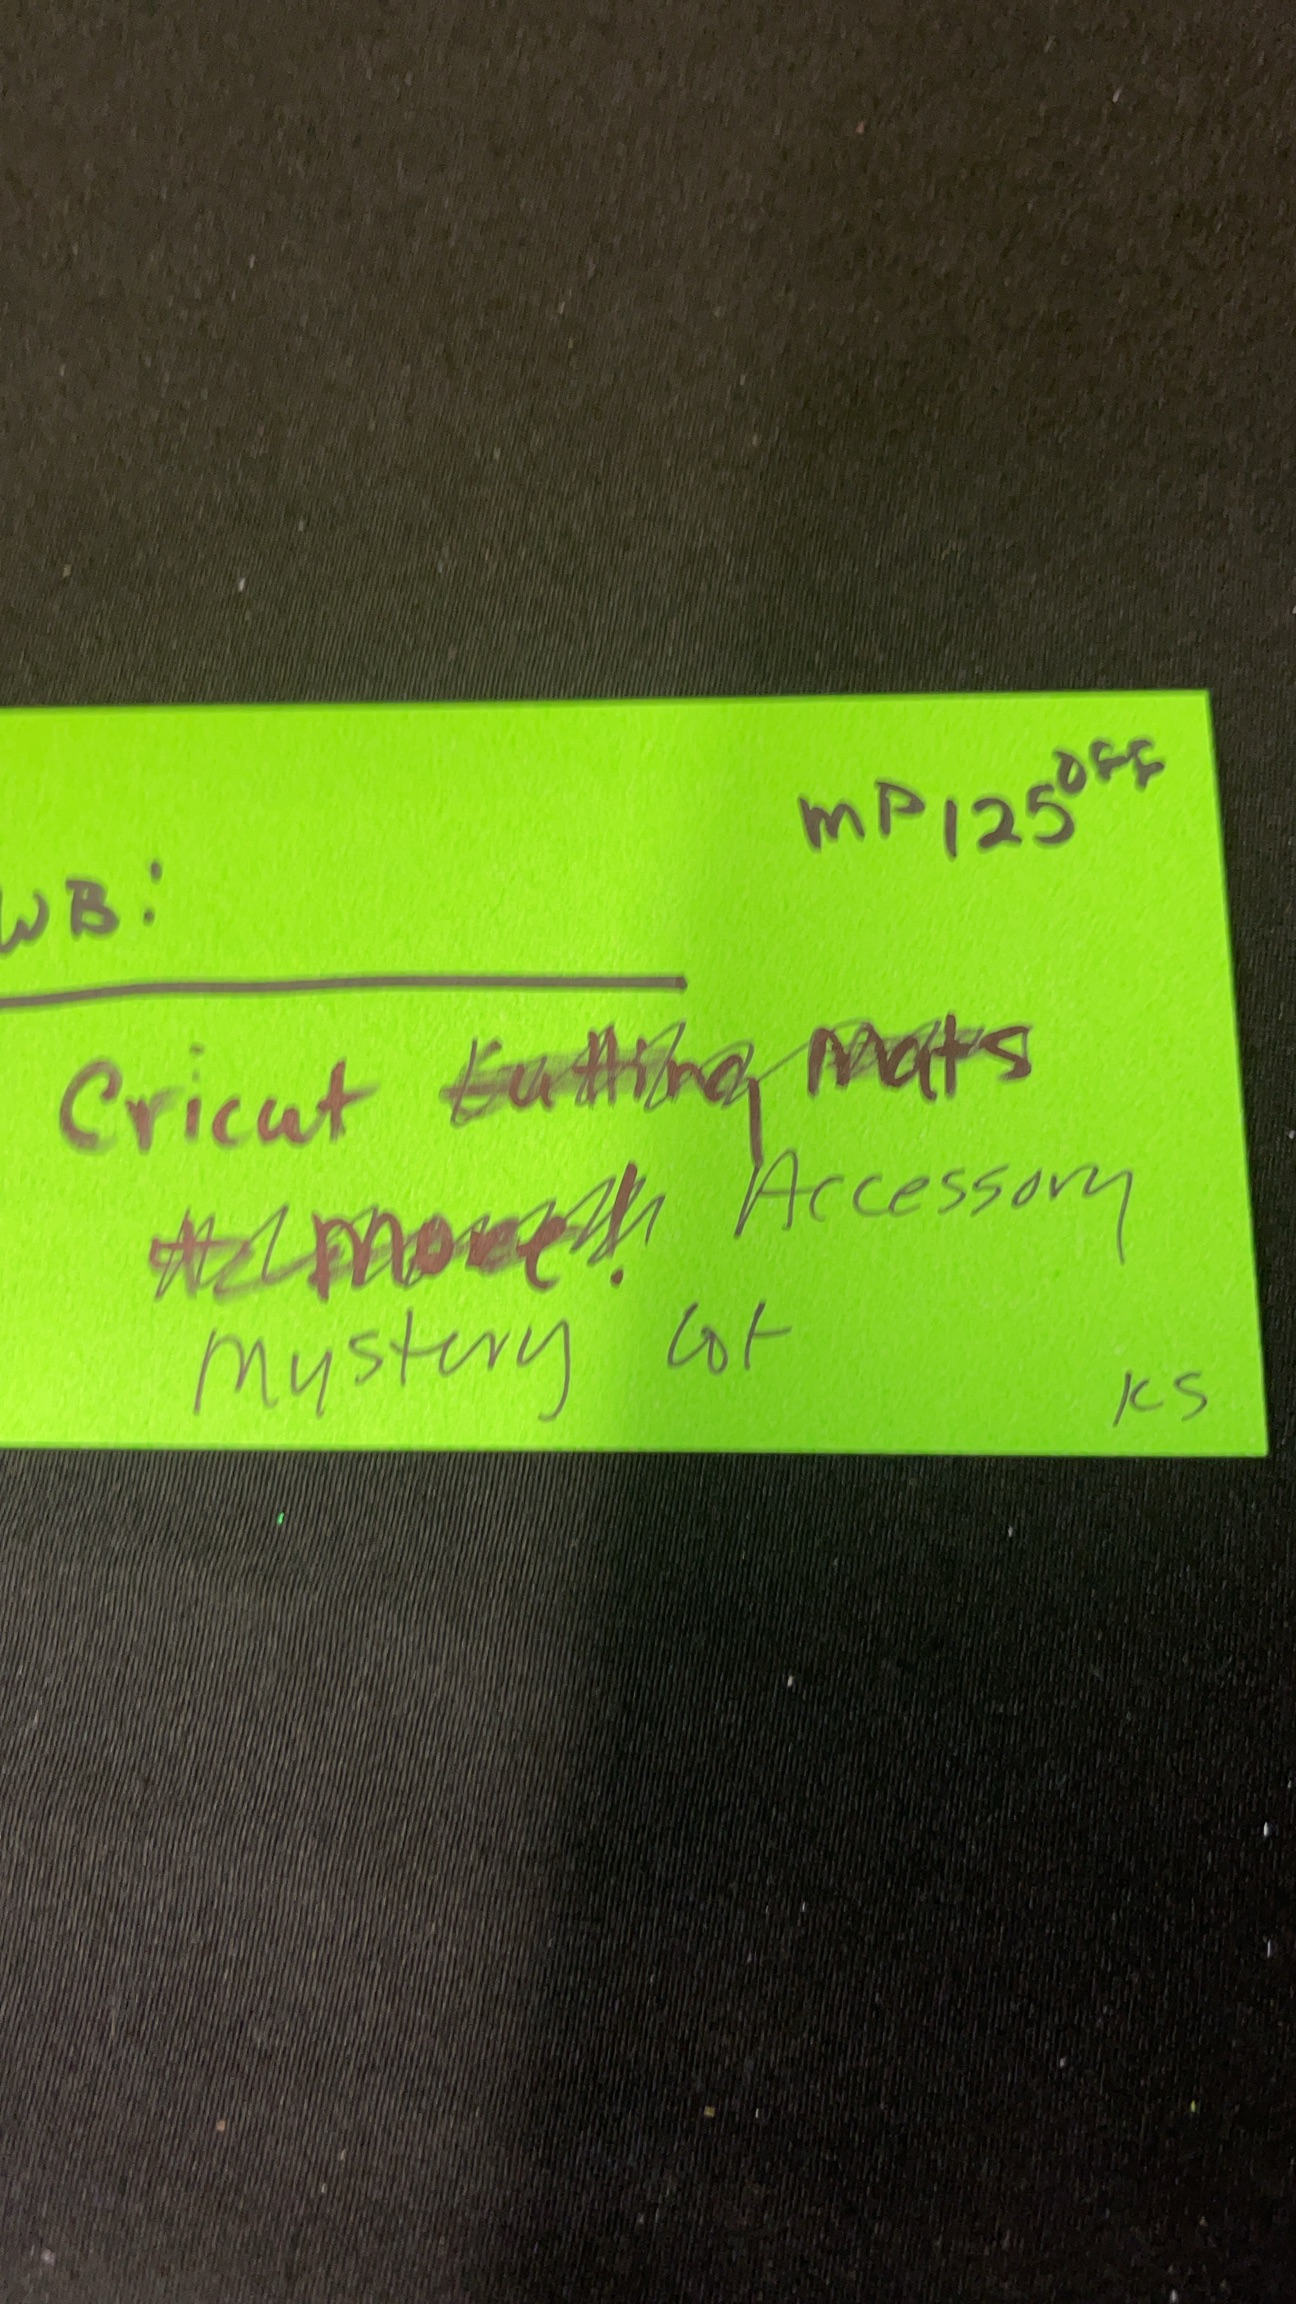 mP125 OFF
WB:
Cricut Cutting Mats
& More! Accessory
Mystery Lot
KS